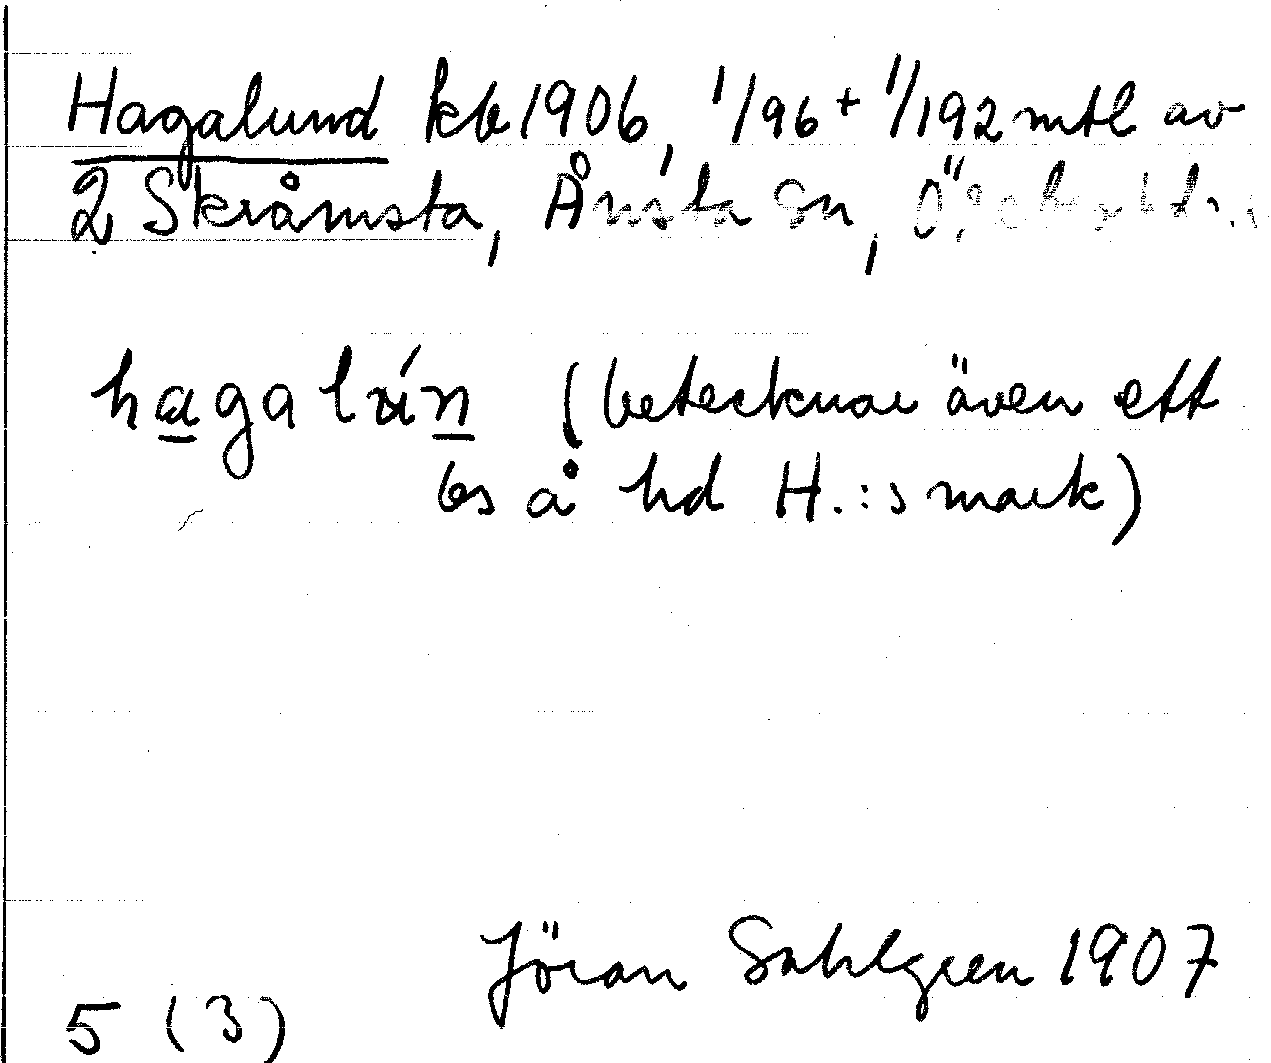 Hagalund kb 1906, 1/96 + 1/192 mtl av
2 Skråmsta, Ånsta sn,
hagalún (betecknar även ett
bs å hd H.:s mark)
Jöran Sahlgren 1907
5 (3)